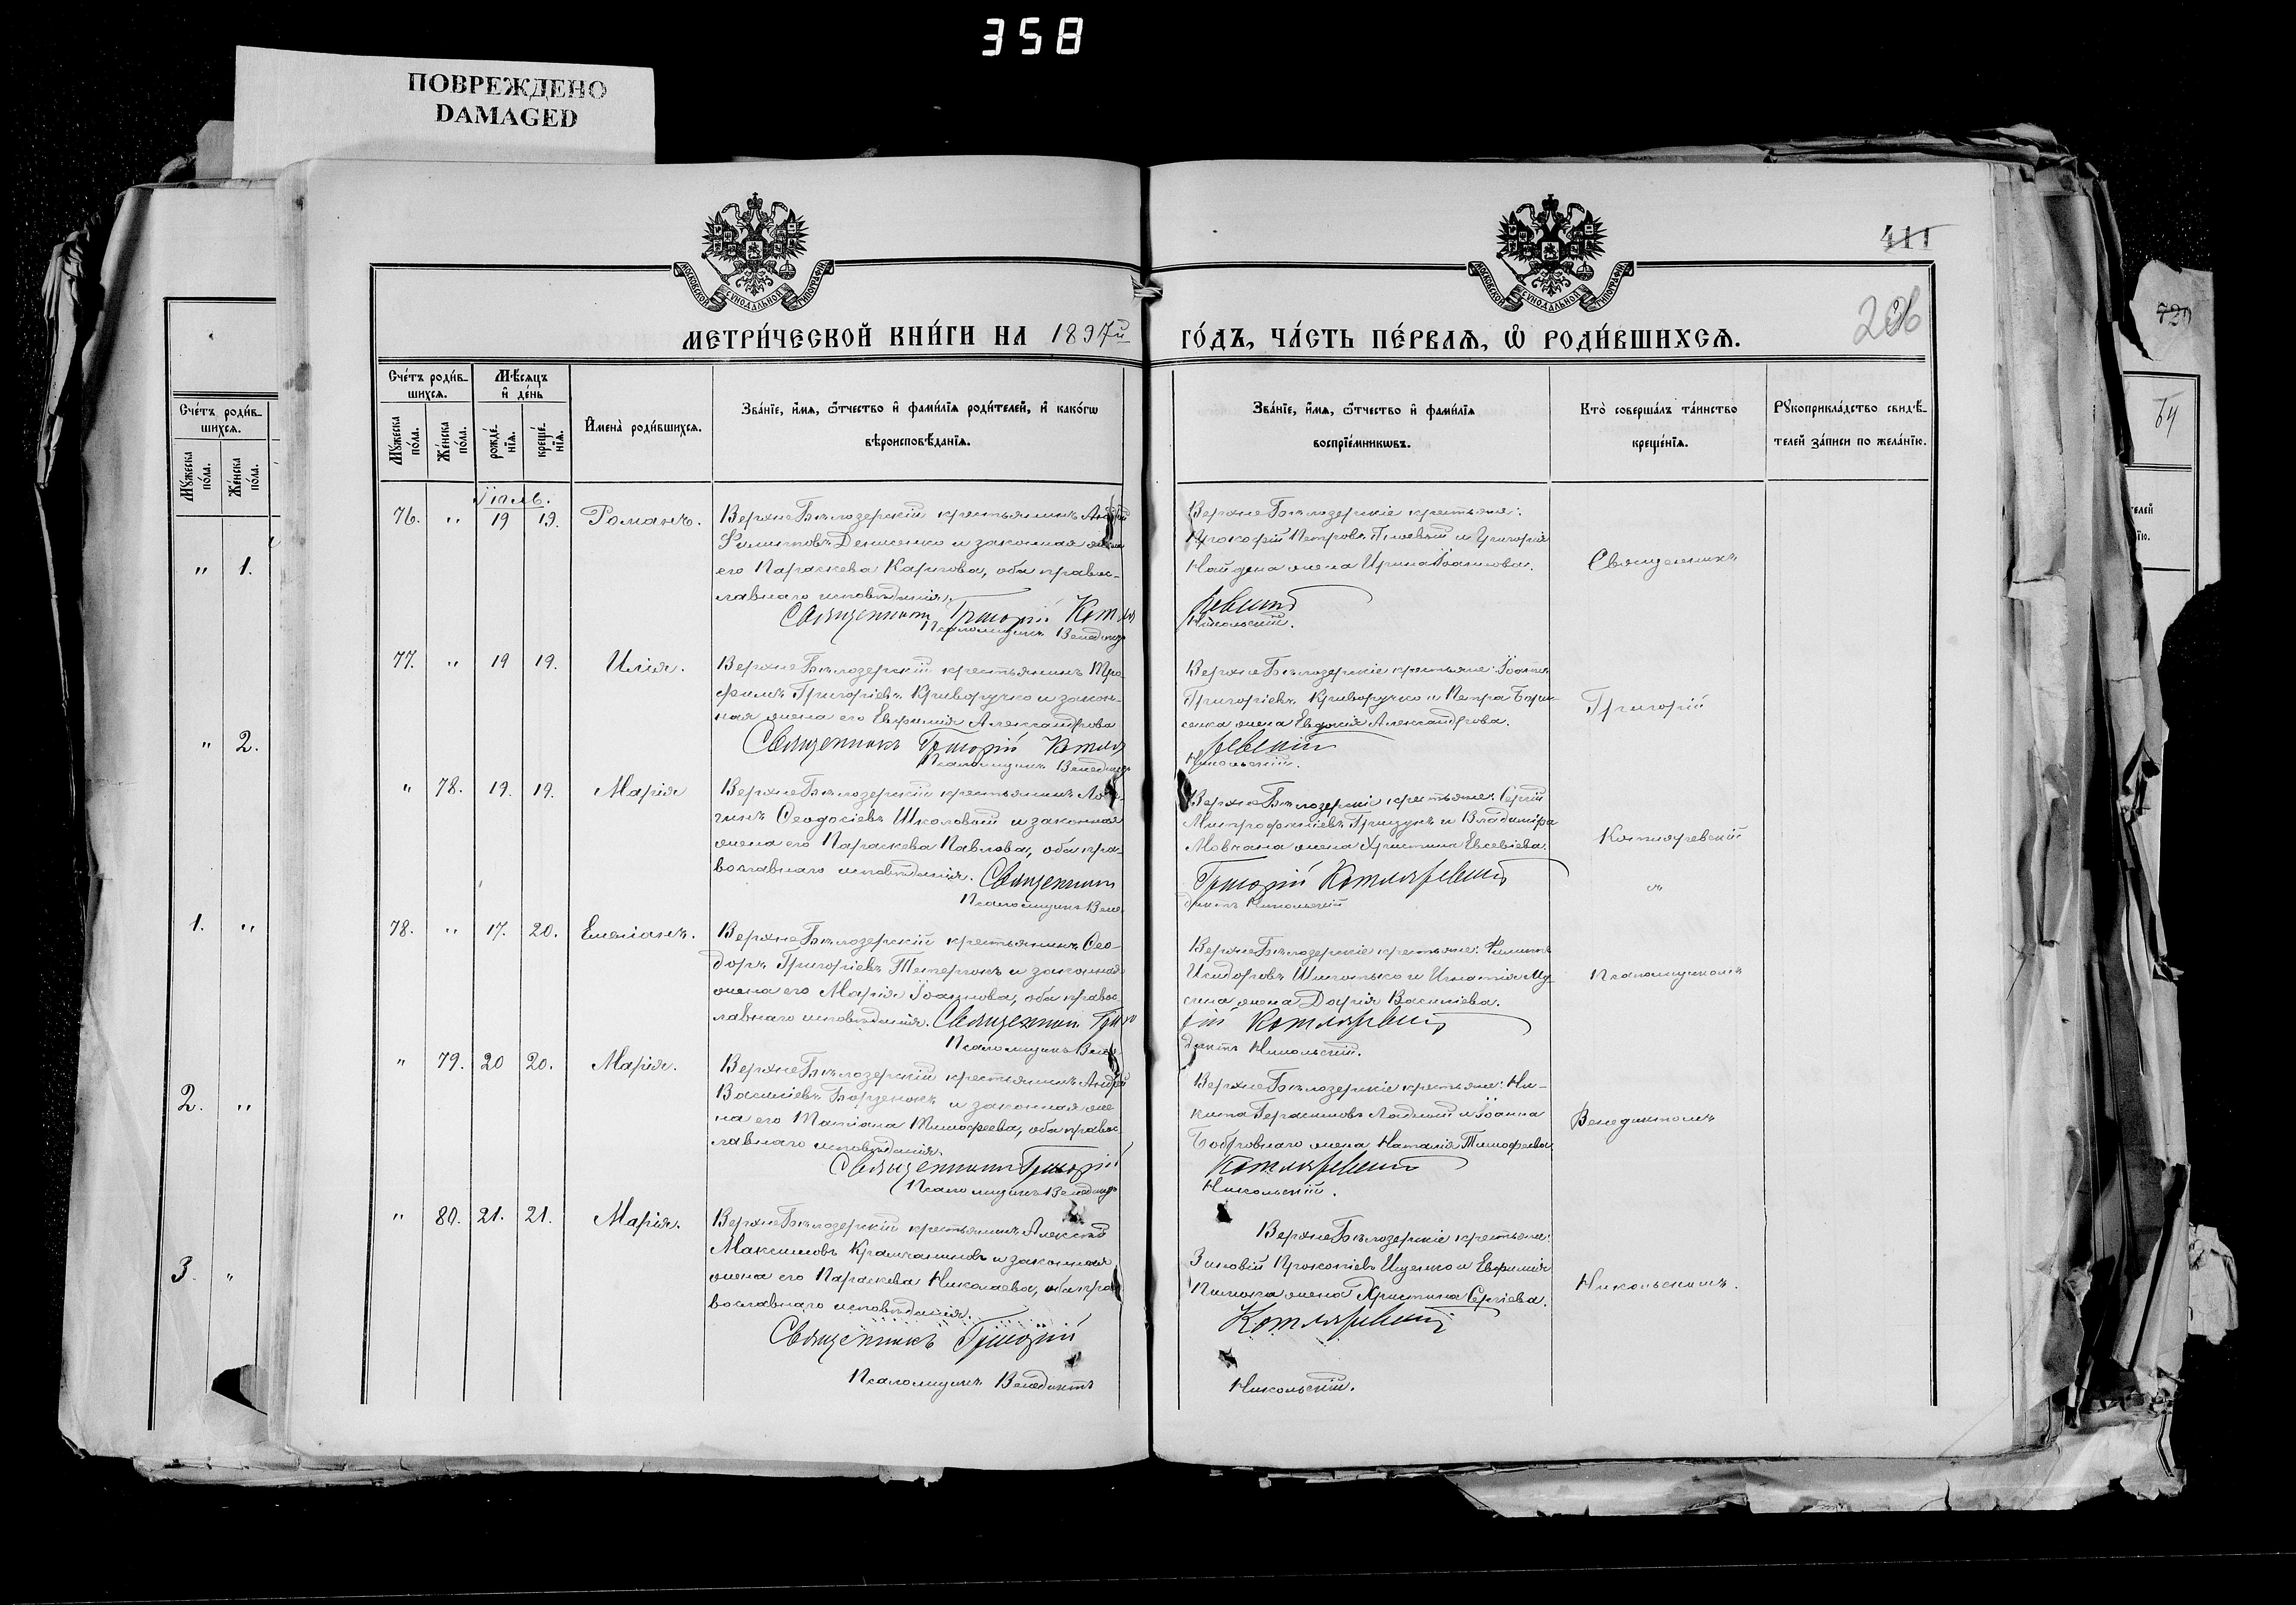 358
ПОВРЕЖДЕНО
DAMAGED
МОСКОВСКОЙ СѴНОДАЛЬНОЙ ТИПОГРАФІИ
МОСКОВСКОЙ СѴНОДАЛЬНОЙ ТИПОГРАФІИ
411
206
МЕТРИ́ЧЕСКОЙ КНИ́ГИ НА 1897й ГО́ДЪ, ЧА́СТЬ ПЕ́РВАЯ, Ѡ҆ РОДИ́ВШИХСЯ.
Сче́тъ роди́в-
шихся.
Мꙋ́жеска по́ла.
Же́нска по́ла.
Мѣ́сяцъ
и҆ де́нь
рожде́-
нїя.
креще́-
нїя.
И҆мена̀ роди́вшихся.
Зва́нїе, и҆́мя, ѻ҆́тчество и҆ фами́лїя роди́телей, и҆ како́гѡ
вѣроисповѣ́данїя.
Зва́нїе, и҆́мя, ѻ҆́тчество и҆ фами́лїя
воспрїе́мникѡвъ.
Кто̀ соверша́лъ та́инство
креще́нїя.
Рꙋкоприкла́дство свидѣ́-
телей за́писи по жела́нїю.
Іюль.
76. " 19 19. Романъ.
ВерхнеБѣлозерскій крестьянинъ Андрей
Филиповъ Денисенко и законная жена
его Параскева Карпова, оба правос-
лавнаго исповѣданія.
Священникъ Григорій Котля
Псаломщикъ Венедиктъ
ВерхнеБѣлозерскіе крестьяне:
Прокофій Петровъ и Григорія
Найдена жена Ирина Іоаннова.
ревскій
Никольскій.
Священникъ
77. " 19 19. Илія.
ВерхнеБѣлозерскій крестьянинъ Тро-
фимъ Григоріевъ Криворучко и закон-
ная жена его Евфимія Александрова
Священникъ Григорій Котля
Псаломщикъ Венедиктъ
ВерхнеБѣлозерскіе крестьяне: Іоаннъ
Григоріевъ Криворучко и Петра Бори-
сенка жена Евдокія Александрова.
ревскій
Никольскій.
Григорій
" 78. 19. 19. Марія
ВерхнеБѣлозерскій крестьянинъ Лон-
гинъ Ѳеодосіевъ Школовый и законная
жена его Параскева Павлова, оба пра-
вославнаго исповѣданія. Священникъ
Псаломщикъ Вене-
ВерхнеБѣлозерскіе крестьяне: Сергій
Митрофаніевъ Гризунъ и Владиміра
Мовчана жена Христина Евсевіева.
Григорій Котляревскій
диктъ Никольскій
Котляревскій
съ
78. " 17. 20. Емеліанъ.
ВерхнеБѣлозерскій крестьянинъ Ѳео-
доръ Григоріевъ Тетерюкъ и законная
жена его Марія Іоаннова, оба правос-
лавнаго исповѣданія. Священникъ Григо
Псаломщикъ Вене-
ВерхнеБѣлозерскіе крестьяне: Филиппъ
Исидоровъ и Игнатія Му-
жена Дарія Василіева.
рій Котляревскій
диктъ Никольскій.
Псаломщикомъ
" 79. 20 20. Марія.
ВерхнеБѣлозерскій крестьянинъ Андрей
Василіевъ и законная же-
на его Матіана Тимофеева, оба правос-
лавнаго исповѣданія.
Священникъ Григорій
Псаломщикъ Венедиктъ
ВерхнеБѣлозерскіе крестьяне: Ни-
кита Герасимовъ Ладный и Іоанна
Бобровнаго жена Наталія Тимофеева
Котляревскій
Никольскій.
Венедиктомъ
" 80. 21. 21. Марія.
ВерхнеБѣлозерскій крестьянинъ Алексѣй
Максимовъ и законная
жена его Параскева Николаева, оба пра-
вославнаго исповѣданія.
Священникъ Григорій
Псаломщикъ Венедиктъ
ВерхнеБѣлозерскіе крестьяне:
Зиновій Прокопіевъ Ищенко и Евфимія
жена Христина Сергіева.
Котляревскій
Никольскій.
Никольскимъ.
Сче́тъ роди́в-
шихся.
Мꙋ́жеска по́ла.
Же́нска по́ла.
" 1.
" 2.
1. "
2. "
3. "
729
телей